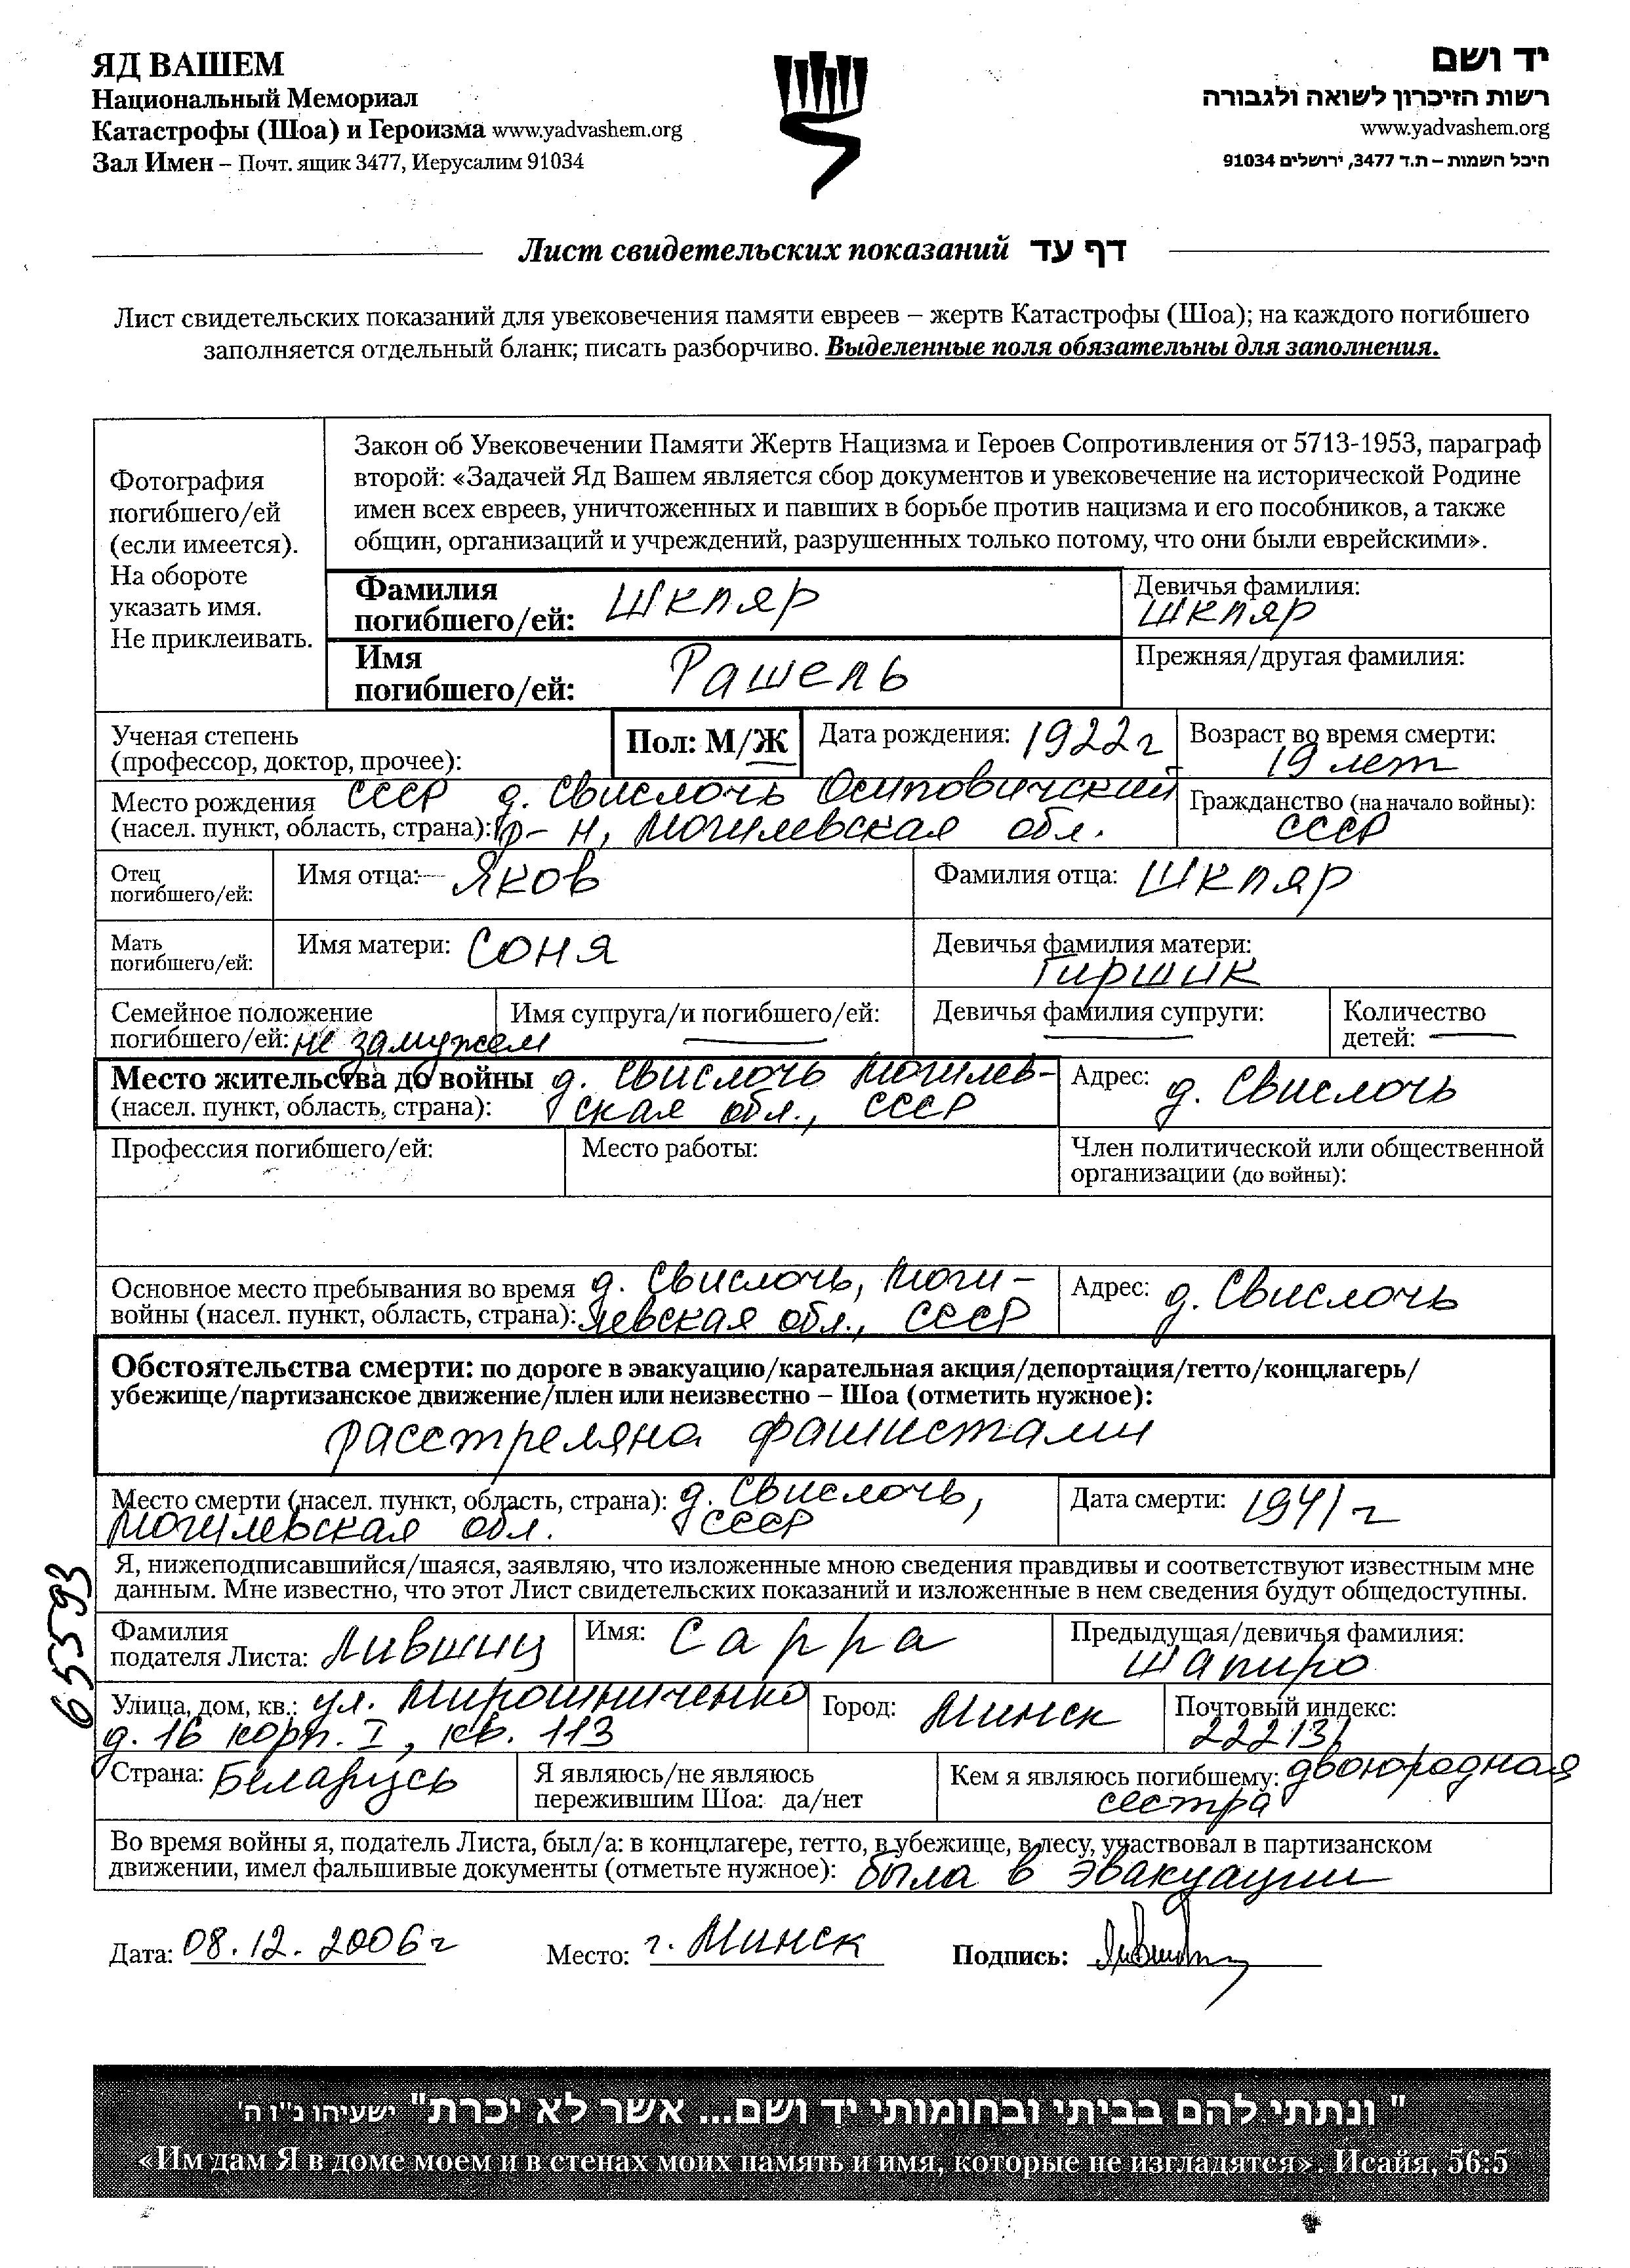 ЯД ВАШЕМ
Национальный Мемориал
Катастрофы (Шоа) и Героизма www.yadvashem.org
Зал Имен – Почт. ящик 3477, Иерусалим 91034
יד ושם
רשות הזיכרון לשואה ולגבורה
www.yadvashem.org
היכל השמות – ת.ד 3477, ירושלים 91034
Лист свидетельских показаний דף עד
Лист свидетельских показаний для увековечения памяти евреев – жертв Катастрофы (Шоа); на каждого погибшего
заполняется отдельный бланк; писать разборчиво. Выделенные поля обязательны для заполнения.
Фотография
погибшего/ей
(если имеется).
На обороте
указать имя.
Не приклеивать.
Закон об Увековечении Памяти Жертв Нацизма и Героев Сопротивления от 5713-1953, параграф
второй: «Задачей Яд Вашем является сбор документов и увековечение на исторической Родине
имен всех евреев, уничтоженных и павших в борьбе против нацизма и его пособников, а также
общин, организаций и учреждений, разрушенных только потому, что они были еврейскими».
Фамилия
погибшего/ей: Шкляр
Девичья фамилия:
Шкляр
Имя
погибшего/ей: Рашель
Прежняя/другая фамилия:
Ученая степень
(профессор, доктор, прочее):
Пол: М/Ж
Дата рождения: 1922 г
Возраст во время смерти:
19 лет
Место рождения СССР д. Свислочь Осиповичский
(насел. пункт, область, страна): р-н, Могилевская обл.
Гражданство (на начало войны):
СССР
Отец
погибшего/ей:
Имя отца: Яков
Фамилия отца: Шкляр
Мать
погибшего/ей:
Имя матери: Соня
Девичья фамилия матери:
Гиршик
Семейное положение
погибшего/ей: не замужем
Имя супруга/и погибшего/ей: —
Девичья фамилия супруги: —
Количество
детей: —
Место жительства до войны д. Свислочь Могилев-
(насел. пункт, область, страна): ская обл., СССР
Адрес: д. Свислочь
Профессия погибшего/ей:
Место работы:
Член политической или общественной
организации (до войны):
Основное место пребывания во время д. Свислочь, Моги-
войны (насел. пункт, область, страна): левская обл., СССР
Адрес: д. Свислочь
Обстоятельства смерти: по дороге в эвакуацию/карательная акция/депортация/гетто/концлагерь/
убежище/партизанское движение/плен или неизвестно – Шоа (отметить нужное):
расстреляна фашистами
Место смерти (насел. пункт, область, страна): д. Свислочь,
Могилевская обл. СССР
Дата смерти: 1941 г
Я, нижеподписавшийся/шаяся, заявляю, что изложенные мною сведения правдивы и соответствуют известным мне
данным. Мне известно, что этот Лист свидетельских показаний и изложенные в нем сведения будут общедоступны.
655593
Фамилия
подателя Листа: Лившиц
Имя: Сарра
Предыдущая/девичья фамилия:
Шапиро
Улица, дом, кв.: ул. Мирошниченко
д. 16 корп. I, кв. 113
Город: Минск
Почтовый индекс:
222131
Страна: Беларусь
Я являюсь/не являюсь
пережившим Шоа: да/нет
Кем я являюсь погибшему: двоюродная
сестра
Во время войны я, податель Листа, был/а: в концлагере, гетто, в убежище, в лесу, участвовал в партизанском
движении, имел фальшивые документы (отметьте нужное): была в эвакуации
Дата: 08.12.2006 г
Место: г. Минск
Подпись:
"ונתתי להם בביתי ובחומותי יד ושם... אשר לא יכרת" ישעיהו נ"ו ה'
«Им дам Я в доме моем и в стенах моих память и имя, которые не изгладятся». Исайя, 56:5